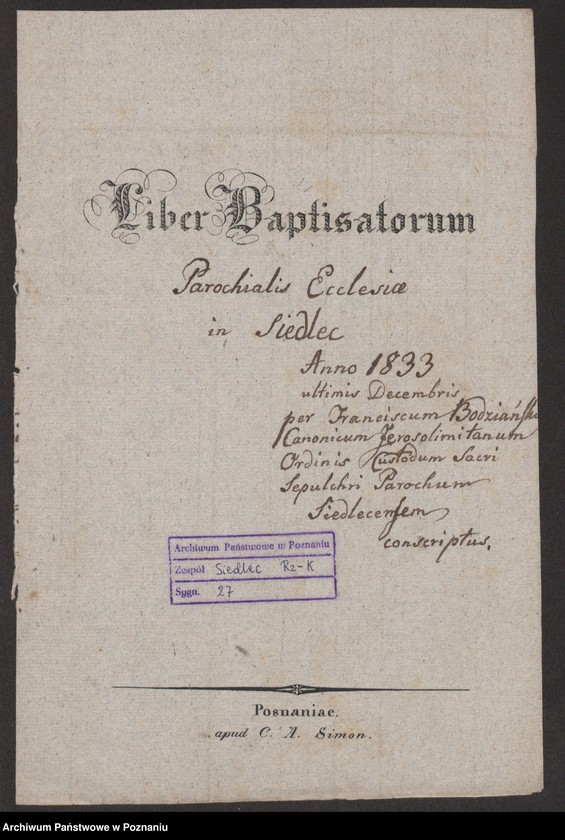 Liber Baptisatorum
Parochialis Ecclesiæ
in Siedlec
Anno 1833
ultimis Decembris
per Franciscum Bodziański
Canonicum Jerosolimitanum
Ordinis Custodum Sacri
Sepulchri Parochum
Siedlecensem
conscriptus.
Archiwum Państwowe w Poznaniu
Zespół Siedlec Rz-K
Sygn. 27
Posnaniae.
apud C. A. Simon.
Archiwum Państwowe w Poznaniu